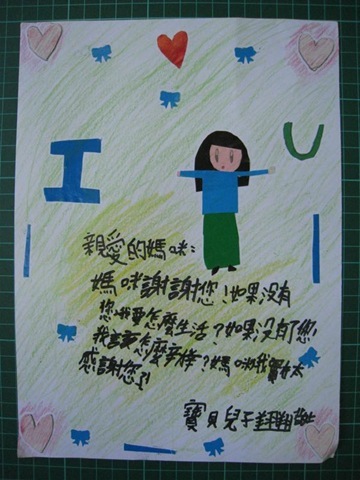 I U
親愛的媽咪:
媽咪謝謝您!如果沒有
您我要怎麼生活?如果沒了您
我該怎麼辦?媽咪我實在太
感謝您了!
寶貝兒子